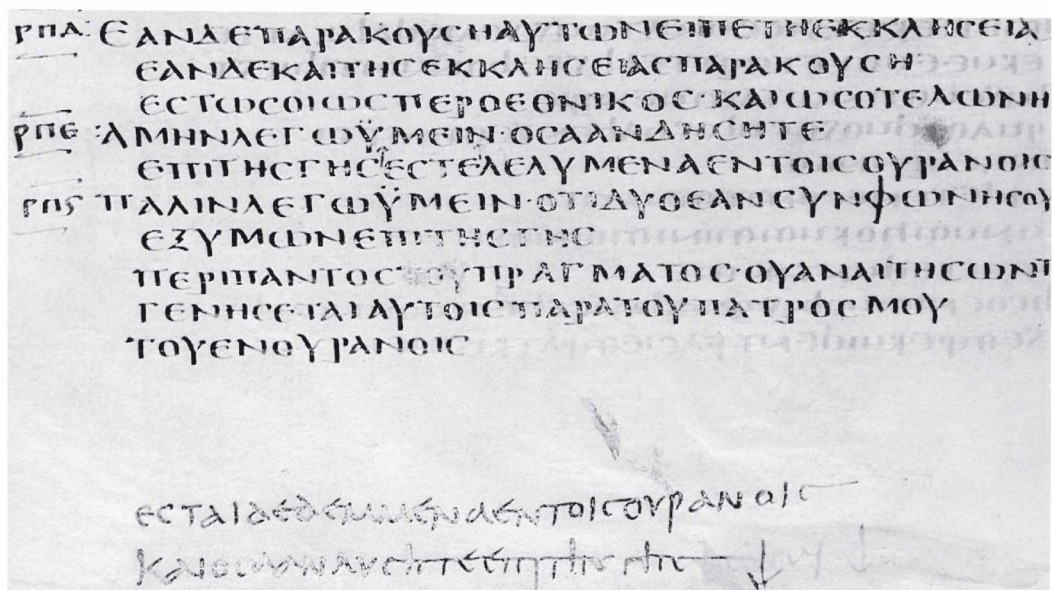 ΡΠΔ: ΕΑΝΔΕΠΑΡΑΚΟΥϹΗΑΥΤΩΝΕΙΠΕΤΗΕΚΚΛΗϹΕΙΑ
ΕΑΝΔΕΚΑΙΤΗϹΕΚΚΛΗϹΕΙΑϹΠΑΡΑΚΟΥϹΗ
ΕϹΤΩϹΟΙΩϹΠΕΡΟΕΘΝΙΚΟϹ·ΚΑΙΩϹΟΤΕΛΩΝΗ
ΡΠΕ :ΑΜΗΝΛΕΓΩΫΜΕΙΝ·ΟϹΑΑΝΔΗϹΗΤΕ
ΕΠΙΤΗϹΓΗϹΕϹΤΕΛΕΛΥΜΕΝΑΕΝΤΟΙϹΟΥΡΑΝΟΙϹ
ΡΠϚ ΠΑΛΙΝΛΕΓΩΫΜΕΙΝ·ΟΤΙΔΥΟΕΑΝϹΥΝΦΩΝΗϹΟΥ
ΕΞΥΜΩΝΕΠΙΤΗϹΓΗϹ
ΠΕΡΙΠΑΝΤΟϹΤΟΥΠΡΑΓΜΑΤΟϹ·ΟΥΑΝΑΙΤΗϹΩΝΤ
ΓΕΝΗϹΕΤΑΙΑΥΤΟΙϹΠΑΡΑΤΟΥΠΑΤΡΟϹΜΟΥ
ΤΟΥΕΝΟΥΡΑΝΟΙϹ
ΕϹΤΑΙΔΕΔΕΜΜΕΝΑΕΝΤΟΙϹΟΥΡΑΝΟΙϹ
ΚΑΙΟϹΩΝΑΝΛΥϹΗΤΕΕΠΗΤΗΝΓΗΝ